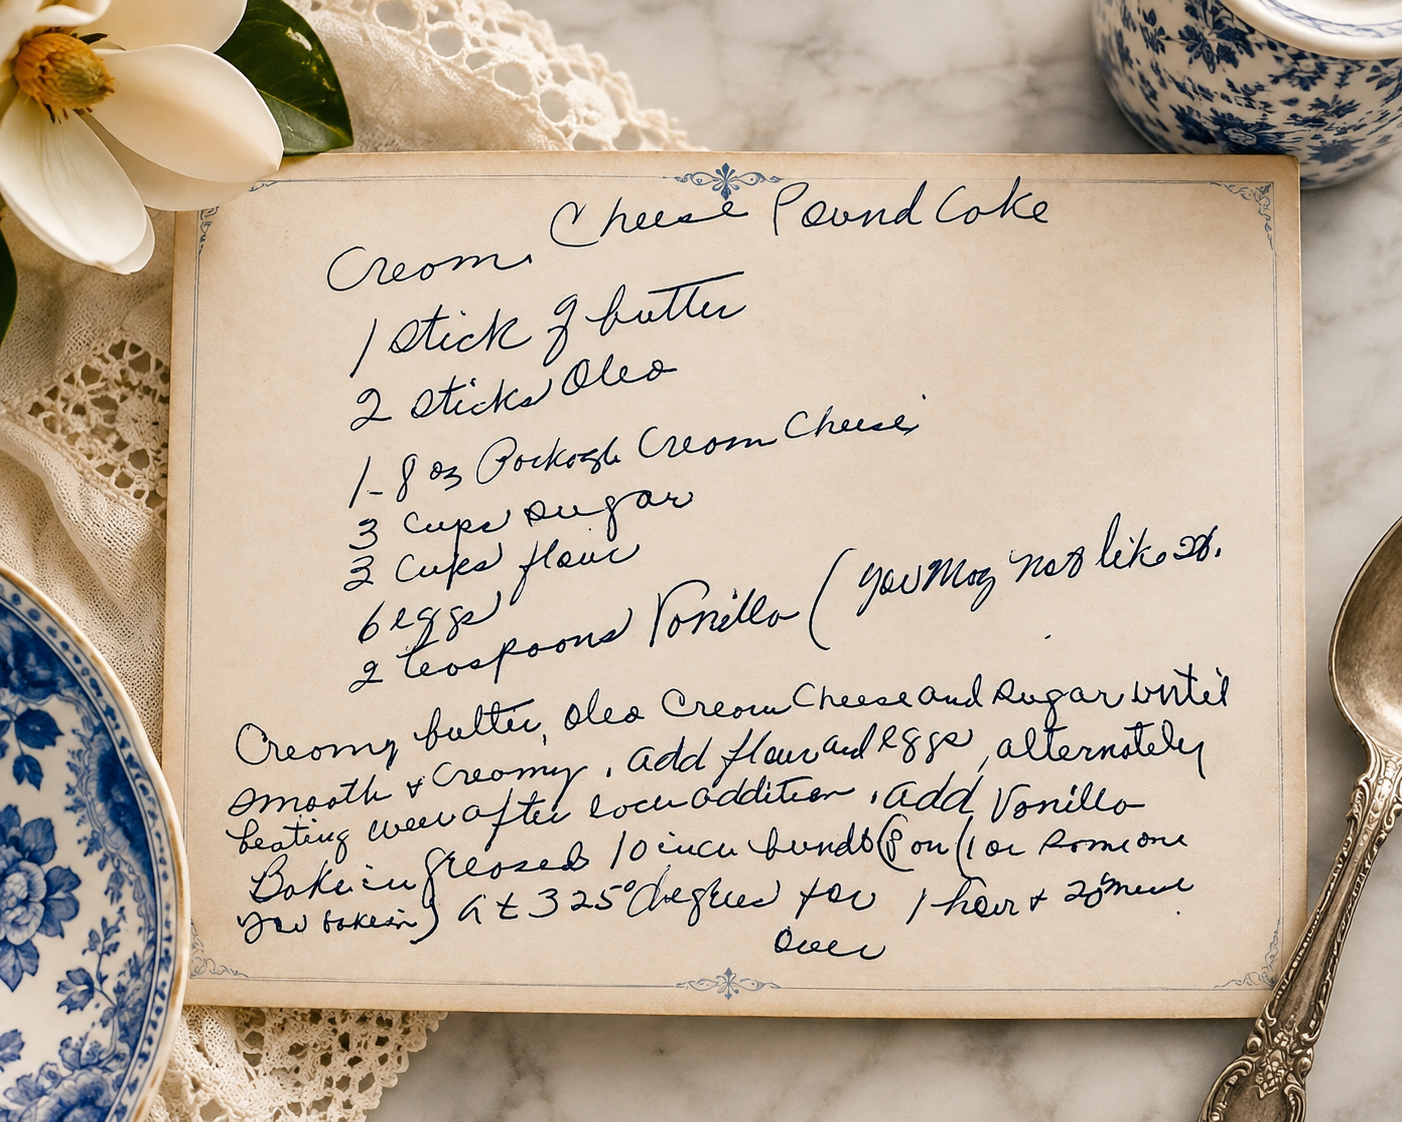 Cream Cheese Pound Cake
1 stick of butter
2 sticks Oleo
1- 8 oz Package Cream Cheese
3 cups sugar
3 cups flour
6 eggs
2 teaspoons Vanilla ( you may not like it.
Creamy butter, Oleo Cream Cheese and sugar until
smooth & creamy, add flour and eggs, alternately
beating well after each addition, add Vanilla
Bake in greased 10 inch bundt (Pan (1 or some one
you bake in) At 325° degrees for 1 hour & 20 min
over